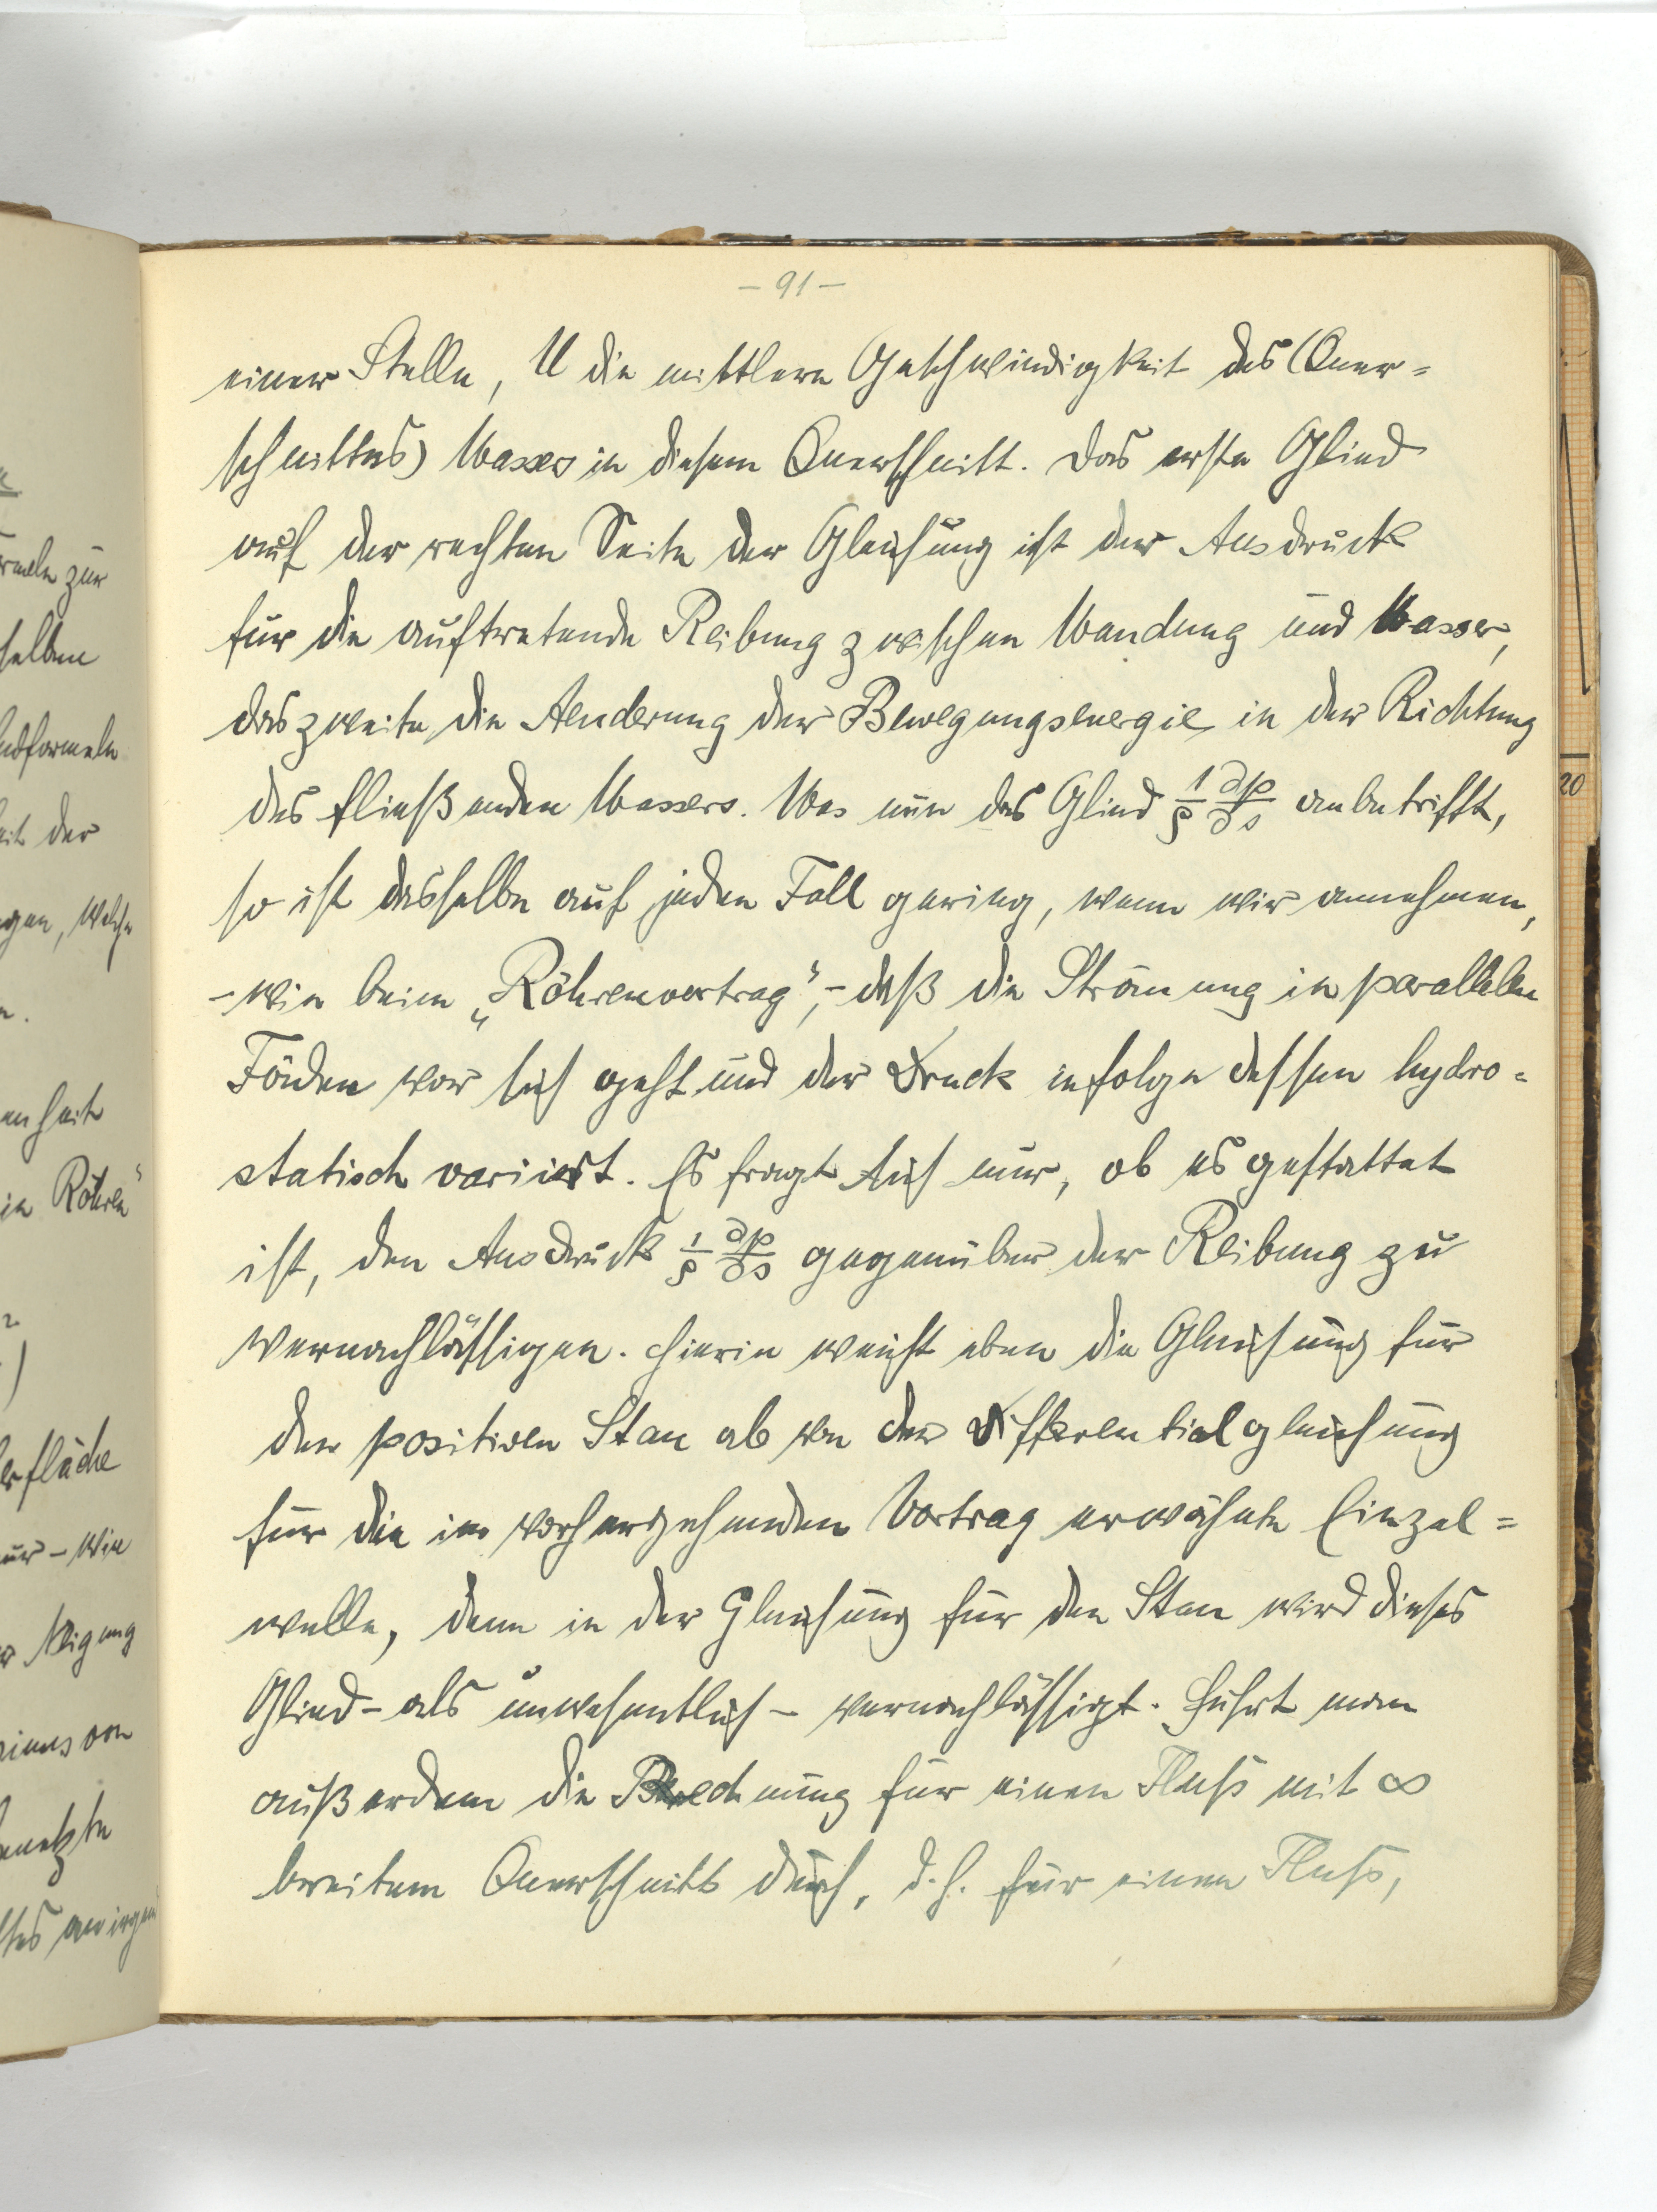 - 91 -
einer Stelle, U die mittlere Geschwindigkeit des (Quer=
schnittes) Wassers in diesem Querschnitt. Das erste Glied
auf der rechten Seite der Gleichung ist der Ausdruck
für die auftretende Reibung zwischen Wandung und Wasser,
das zweite die Aenderung der Bewegungsenergie in der Richtung
des fließenden Wassers. Was nun das Glied 1/ρ ∂p/∂s anbetrifft,
so ist dasselbe auf jeden Fall gering, wenn wir annehmen,
- wie beim „Röhrenvortrag", - daß die Strömung in parallelen
Fäden vor sich geht und der Druck infolge dessen hydro=
statisch variiert. Es fragt sich nur, ob es gestattet
ist, den Ausdruck 1/ρ ∂p/∂s gegenüber der Reibung zu
vernachlässigen. Hierin weicht eben die Gleichung für
den positiven Stau ab von der Differentialgleichung
für die im vorhergehenden Vortrag erwähnte Einzel=
welle, denn in der Gleichung für den Stau wird dieses
Glied - als unwesentlich - vernachlässigt. Führt man
außerdem die Rechnung für einen Fluß mit ∞
breitem Querschnitt durch, d.h. für einen Fluß,
rmeln zur
selben
ndformeln
eit der
gen, welche
enheit
in Röhren"
erfläche
nur - wie
er Neigung
benetzte
20